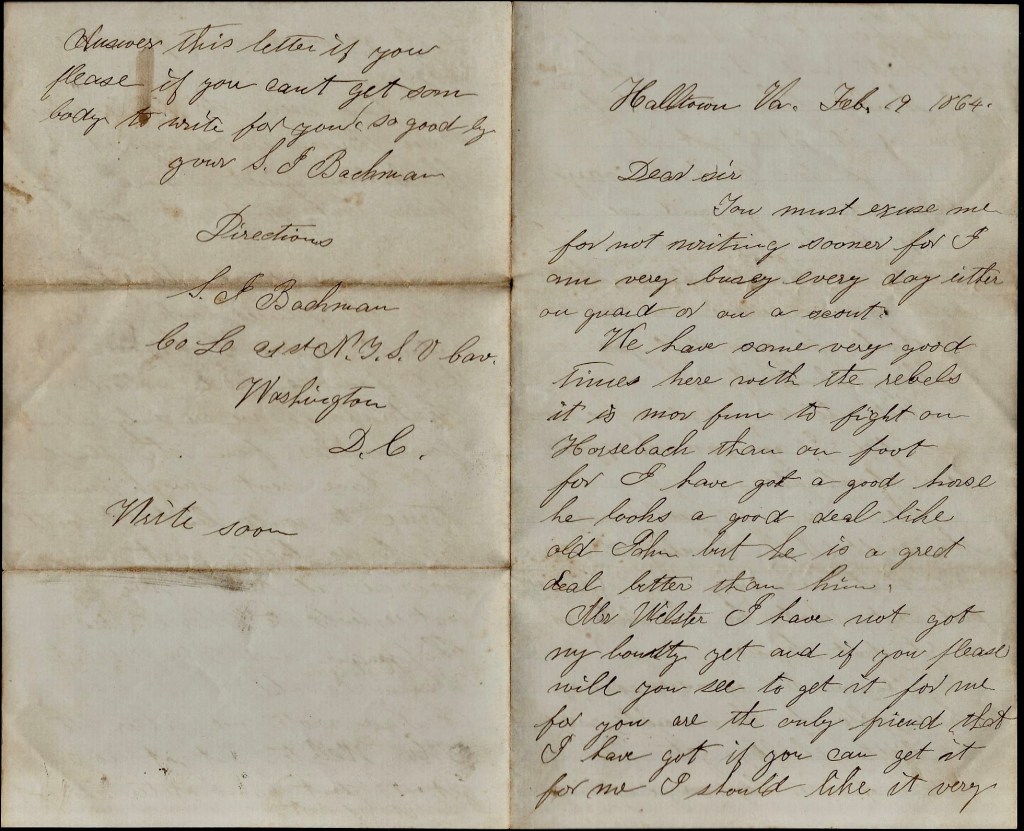 Answer this letter if you
please if you cant get som
body to write for you so good by
your S. J Bachman
Directions
S. J Bachman
Co L 21st N.Y.S.V Cav.
Washington
D.C.
Write soon
Halltown Va. Feb. 9 1864.
Dear sir
You must excuse me
for not writing sooner for I
am very busey every day ither
on guard or on a scout.
We have some very good
times here with the rebels
it is mor fun to fight on
Horseback than on foot
for I have got a good horse
he looks a good deal like
old John but he is a gret
deal better than him.
Mr Welster I have not got
my bounty yet and if you please
will you see to get it for me
for you are the only friend that
I have got if you can get it
for me I should like it very